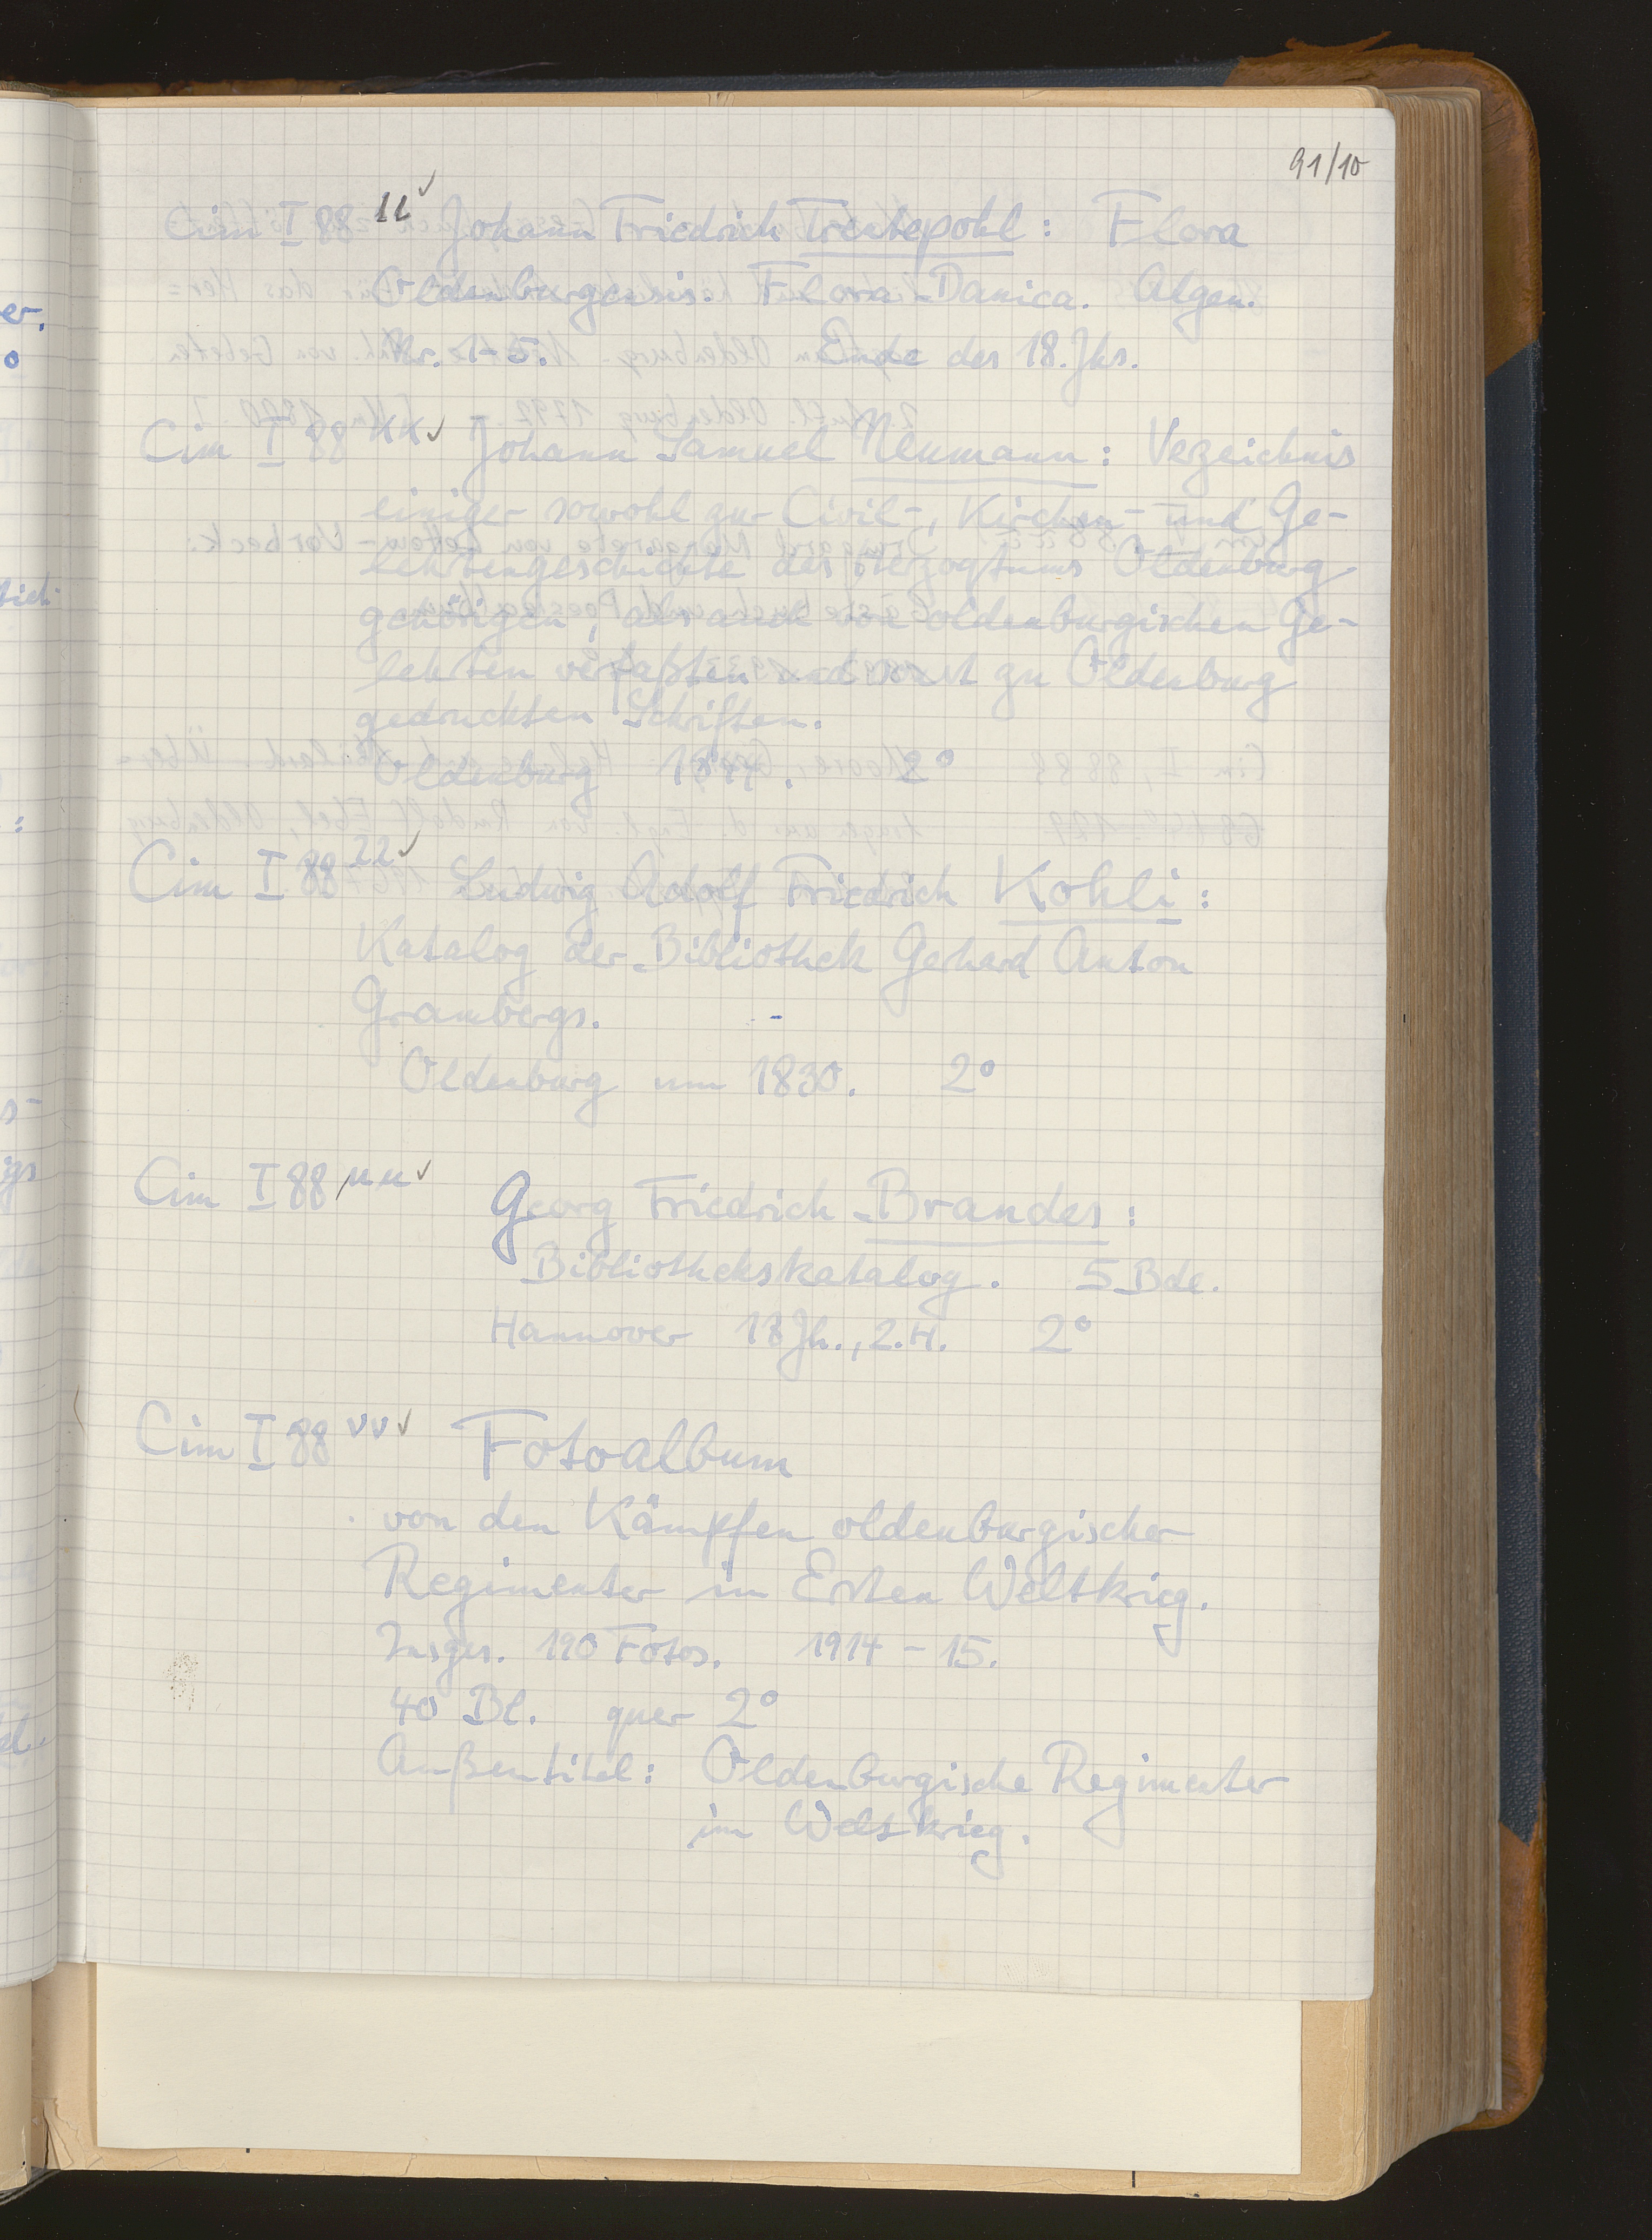 91/10
Cim I 88 ιι ✓ Johann Friedrich Trentepohl: Flora
Oldenburgensis. Flora Danica. Algen.
Nr. 1-5. Ende des 18. Jhs.
Cim I 88 κκ ✓ Johann Samuel Neumann: Vezeichnis
einiger sowohl zur Civil-, Kirchen- und Ge-
lehrtengeschichte des Herzogtums Oldenburg
gehörigen, als auch von oldenburgischen Ge-
lehrten verfaßten und sonst zu Oldenburg
gedruckten Schriften.
Oldenburg 2°
Cim I 88 λλ ✓ Ludwig Adolf Friedrich Kohli:
Katalog der Bibliothek Gerhard Anton
Grambergs. -
Oldenburg um 1830. 2°
Cim I 88 μμ ✓ Georg Friedrich Brandes:
Bibliothekskatalog. 5 Bde.
Hannover 18 Jh., 2. H. 2°
Cim I 88 νν ✓ Fotoalbum
von den Kämpfen oldenburgischer
Regimenter im Ersten Weltkrieg.
Insges. 190 Fotos. 1914 - 15.
40 Bl. quer 2°
Außentitel: Oldenburgische Regimenter
im Weltkrieg.